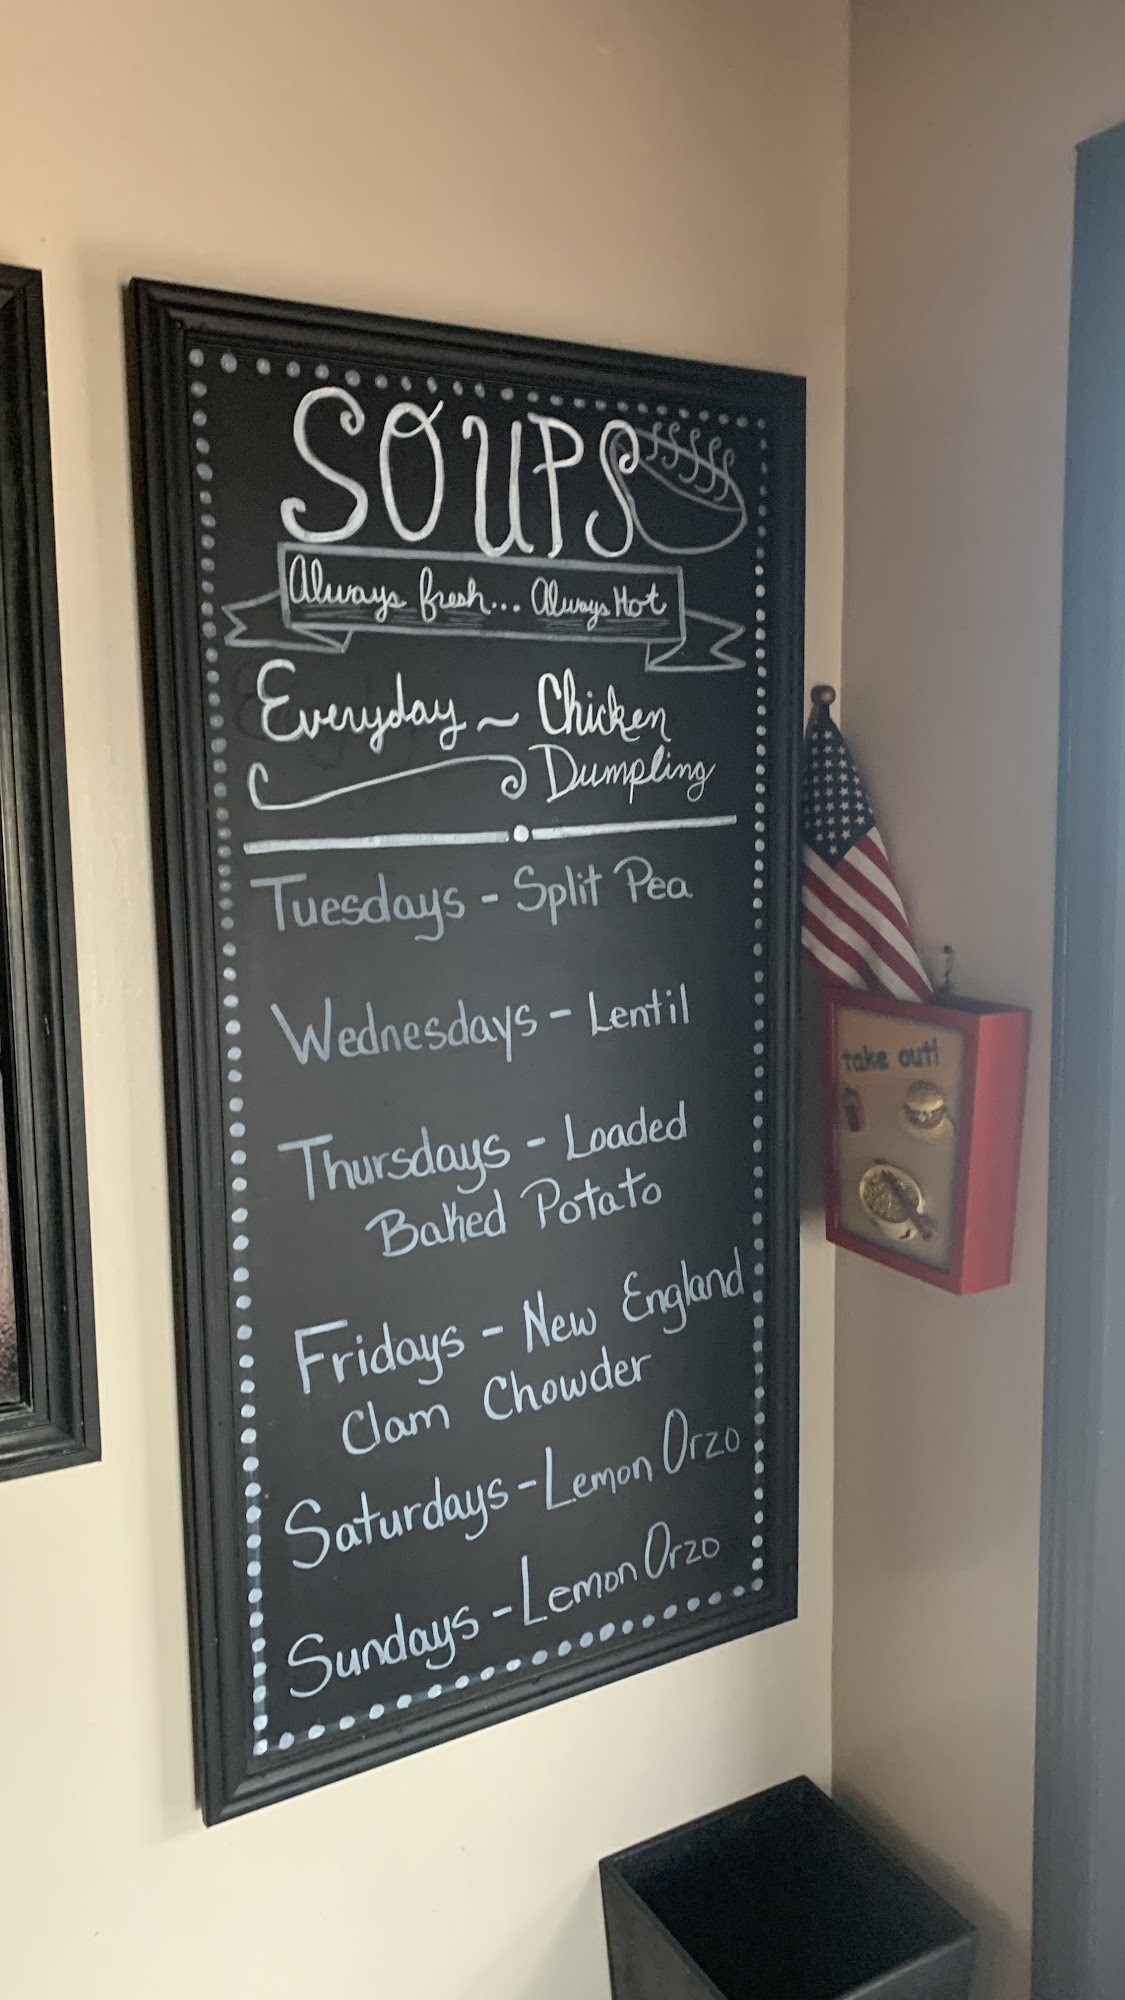 SOUPS
Always fresh... Always Hot
Everyday ~ Chicken
Dumpling
Tuesdays - Split Pea
Wednesdays - Lentil
Thursdays - Loaded
Baked Potato
Fridays - New England
Clam Chowder
Saturdays - Lemon Orzo
Sundays - Lemon Orzo
take out!